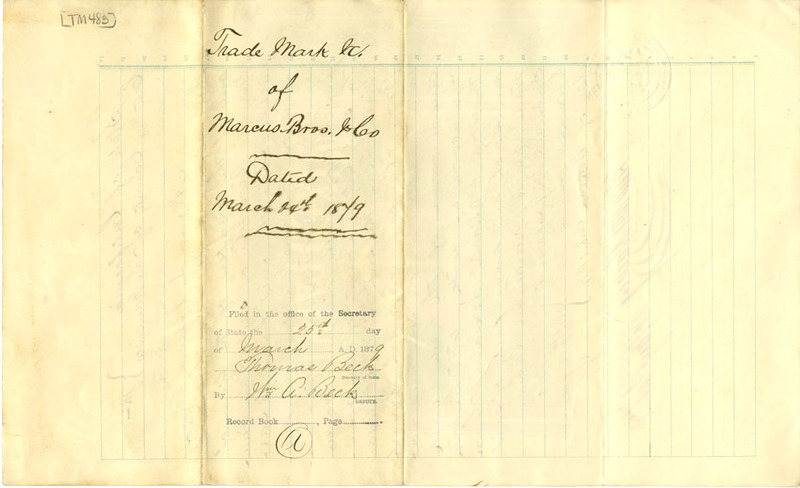 [TM483]
Trade Mark &c.
of
Marcus. Bros. & Co
Dated
March 24th 1879
Filed in the office of the Secretary
of State the 25th day
of March A. D. 1879
Thomas Beck
Secretary of State
By Wm A. Beck
DEPUTY.
Record Book, Page
a